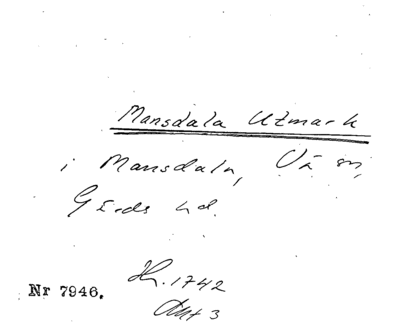 Mansdala Utmark
i Mansdala, Vä sn,
Gärds hd.
Hr. 1742
Nr 7946.
Akt 3